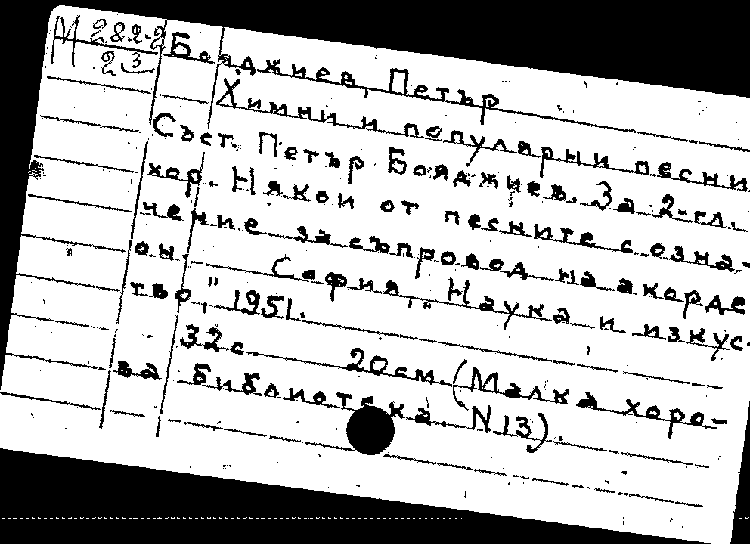 М 282-2
23
Бояджиев, Петър
Химни и популярни песни
Съст. Петър Бояджиев. За 2-гл.
хор. Някои от песните с озна-
чение за съпровод на акорде
он. София, "Наука и изкус-
тво", 1951.
32 с. 20 см. (Малка хоро-
ва библиотека. N 13).